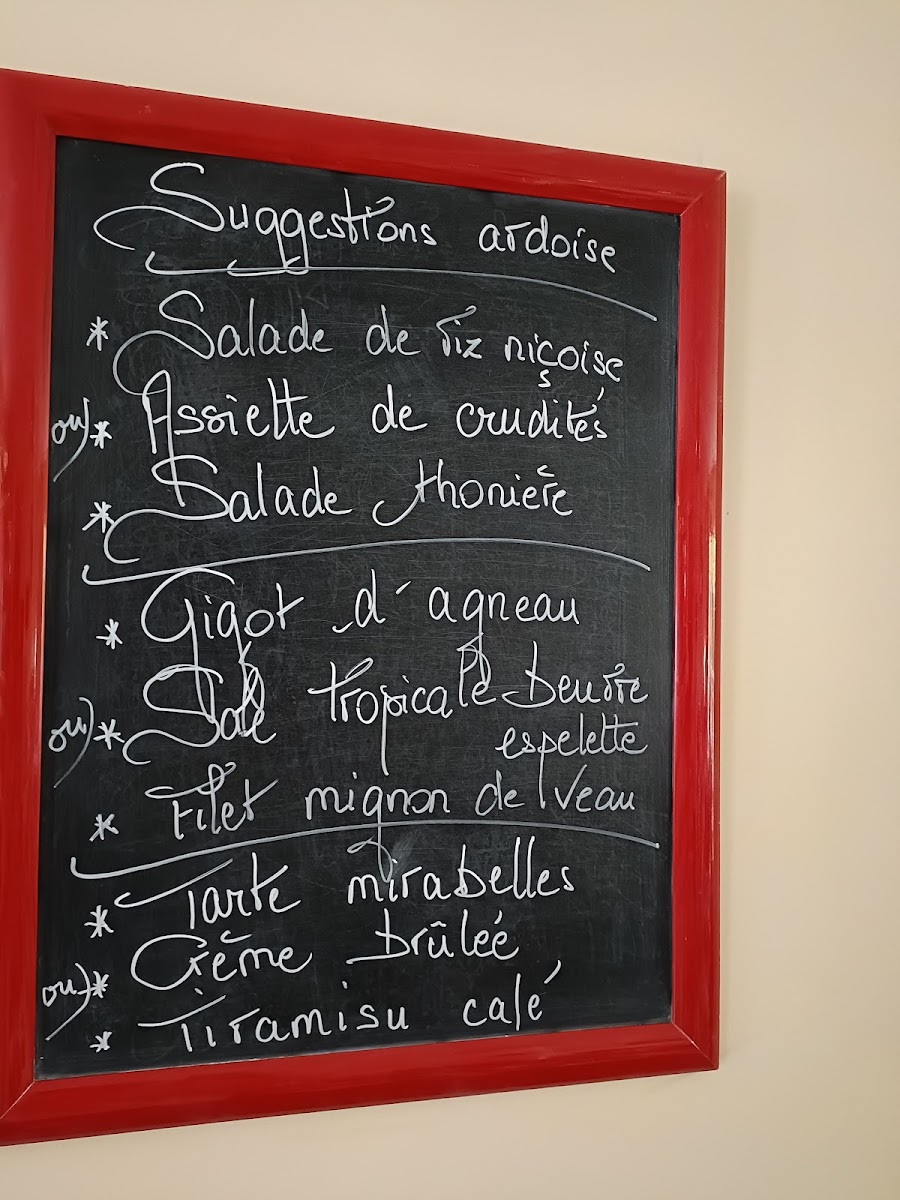 Suggestions ardoise
* Salade de riz niçoise
ou) * Assiette de crudités
* Salade thonière
* Gigot d'agneau
ou) * Sole tropicale beurre
espelette
* Filet mignon de veau
* Tarte mirabelles
ou) * Crème brûléé
* Tiramisu café